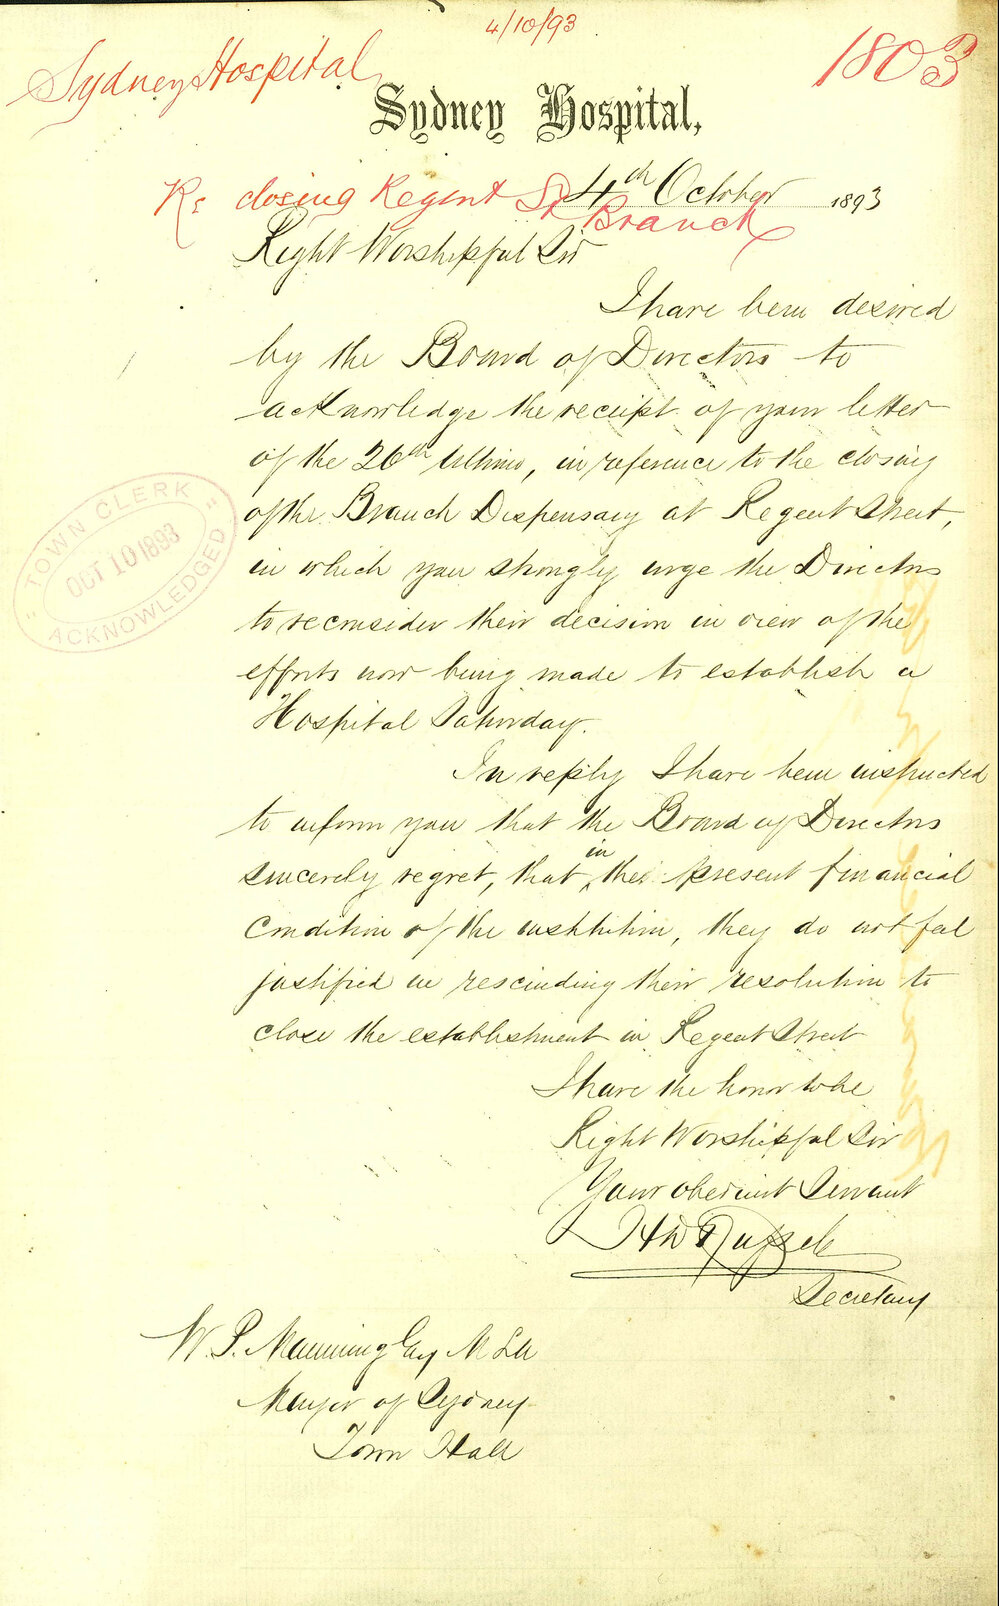 4/10/93
Sydney Hospital
1803
Sydney Hospital,
Re closing Regent St Branch
4th October 1893
Right Worshipful Sir
I have been desired
by the Board of Directors to
acknowledge the receipt of your letter
of the 26th Ultimo, in reference to the closing
of the Branch Dispensary at Regent Street,
in which you strongly urge the Directors
to reconsider their decision in view of the
efforts now being made to establish a
Hospital Saturday.
In reply I have been instructed
to inform you that the Board of Directors
sincerely regret, that in the present financial
condition of the institution, they do not feel
justified in rescinding their resolution to
close the establishment in Regent Street
I have the honor to be
Right Worshipful Sir
Your obedient Servant
Secretary
W. P. Manning Esq M L A
Mayor of Sydney
Town Hall
"TOWN CLERK"
OCT 10 1893
ACKNOWLEDGED